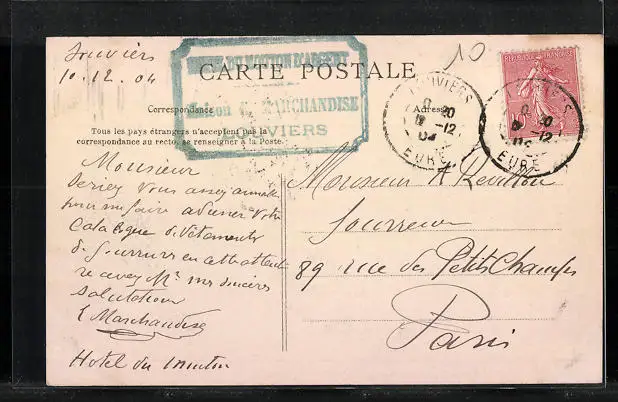 Louviers
10.12.04
HOTEL DU MOUTON D'ARGENT
Maison E. MARCHANDISE
LOUVIERS
CARTE POSTALE
Correspondance
Adresse
Tous les pays étrangers n'acceptent pas la
correspondance au recto, se renseigner à la Poste.
10
LOUVIERS
20
12
04
EURE
REPUBLIQUE FRANÇAISE
10
LOUVIERS
20
12
EURE
Monsieur
Seriez vous assez aimable
pour me faire adresser votre
Catalogue de Vêtements
de fourrures en cette attente
recevez Mr mes sincères
salutations
E Marchandise
Hotel du mouton
Monsieur Revillon
fourreur
89 rue des Petits Champs
Paris